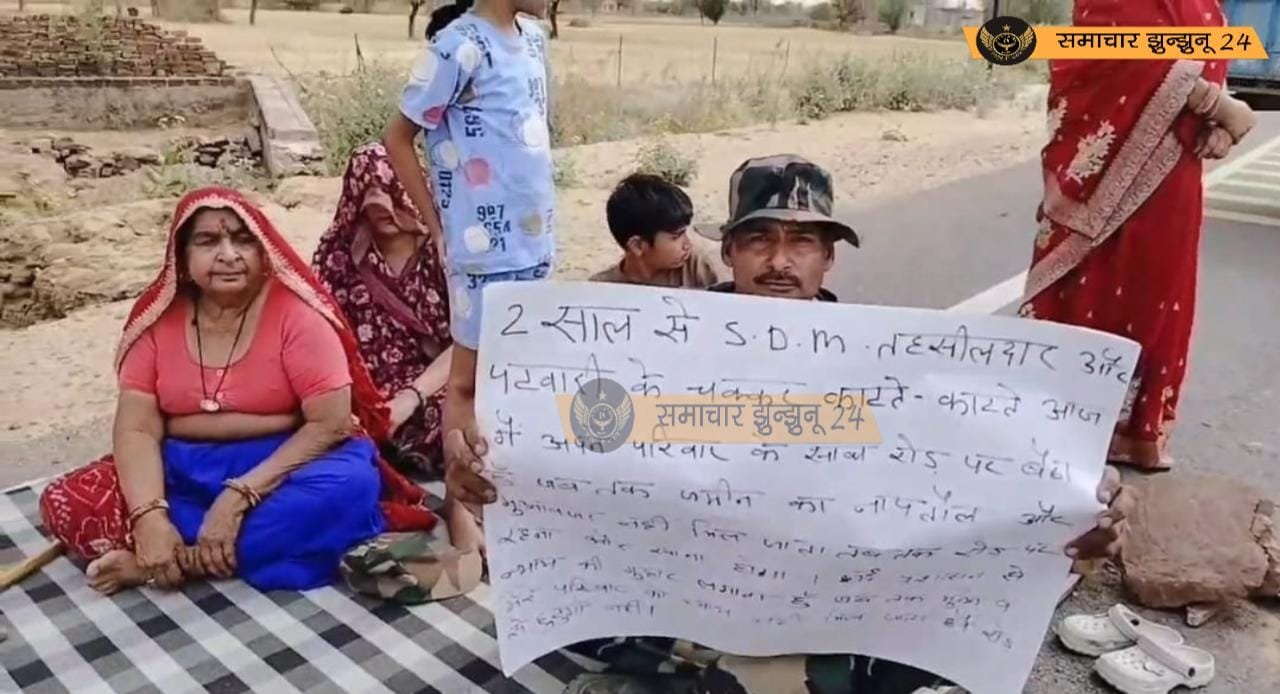 समाचार झुन्झुनू 24
997
654
21
2 साल से S.D.M. तहसीलदार और
पटवारी के चक्कर काटते-काटते आज
समाचार झुन्झुनू 24
मैं अपने परिवार के साथ रोड़ पर बैठा
हूँ जब तक जमीन का नापतौल और
मुआवजा नहीं मिल जाता तब तक रोड़ पर
रहना और खाना होगा। प्रशासन से
न्याय की गुहार लगाता हूँ जब तक मुझे व
मेरे परिवार को न्याय नहीं मिल जाता है रोड़
से नहीं।